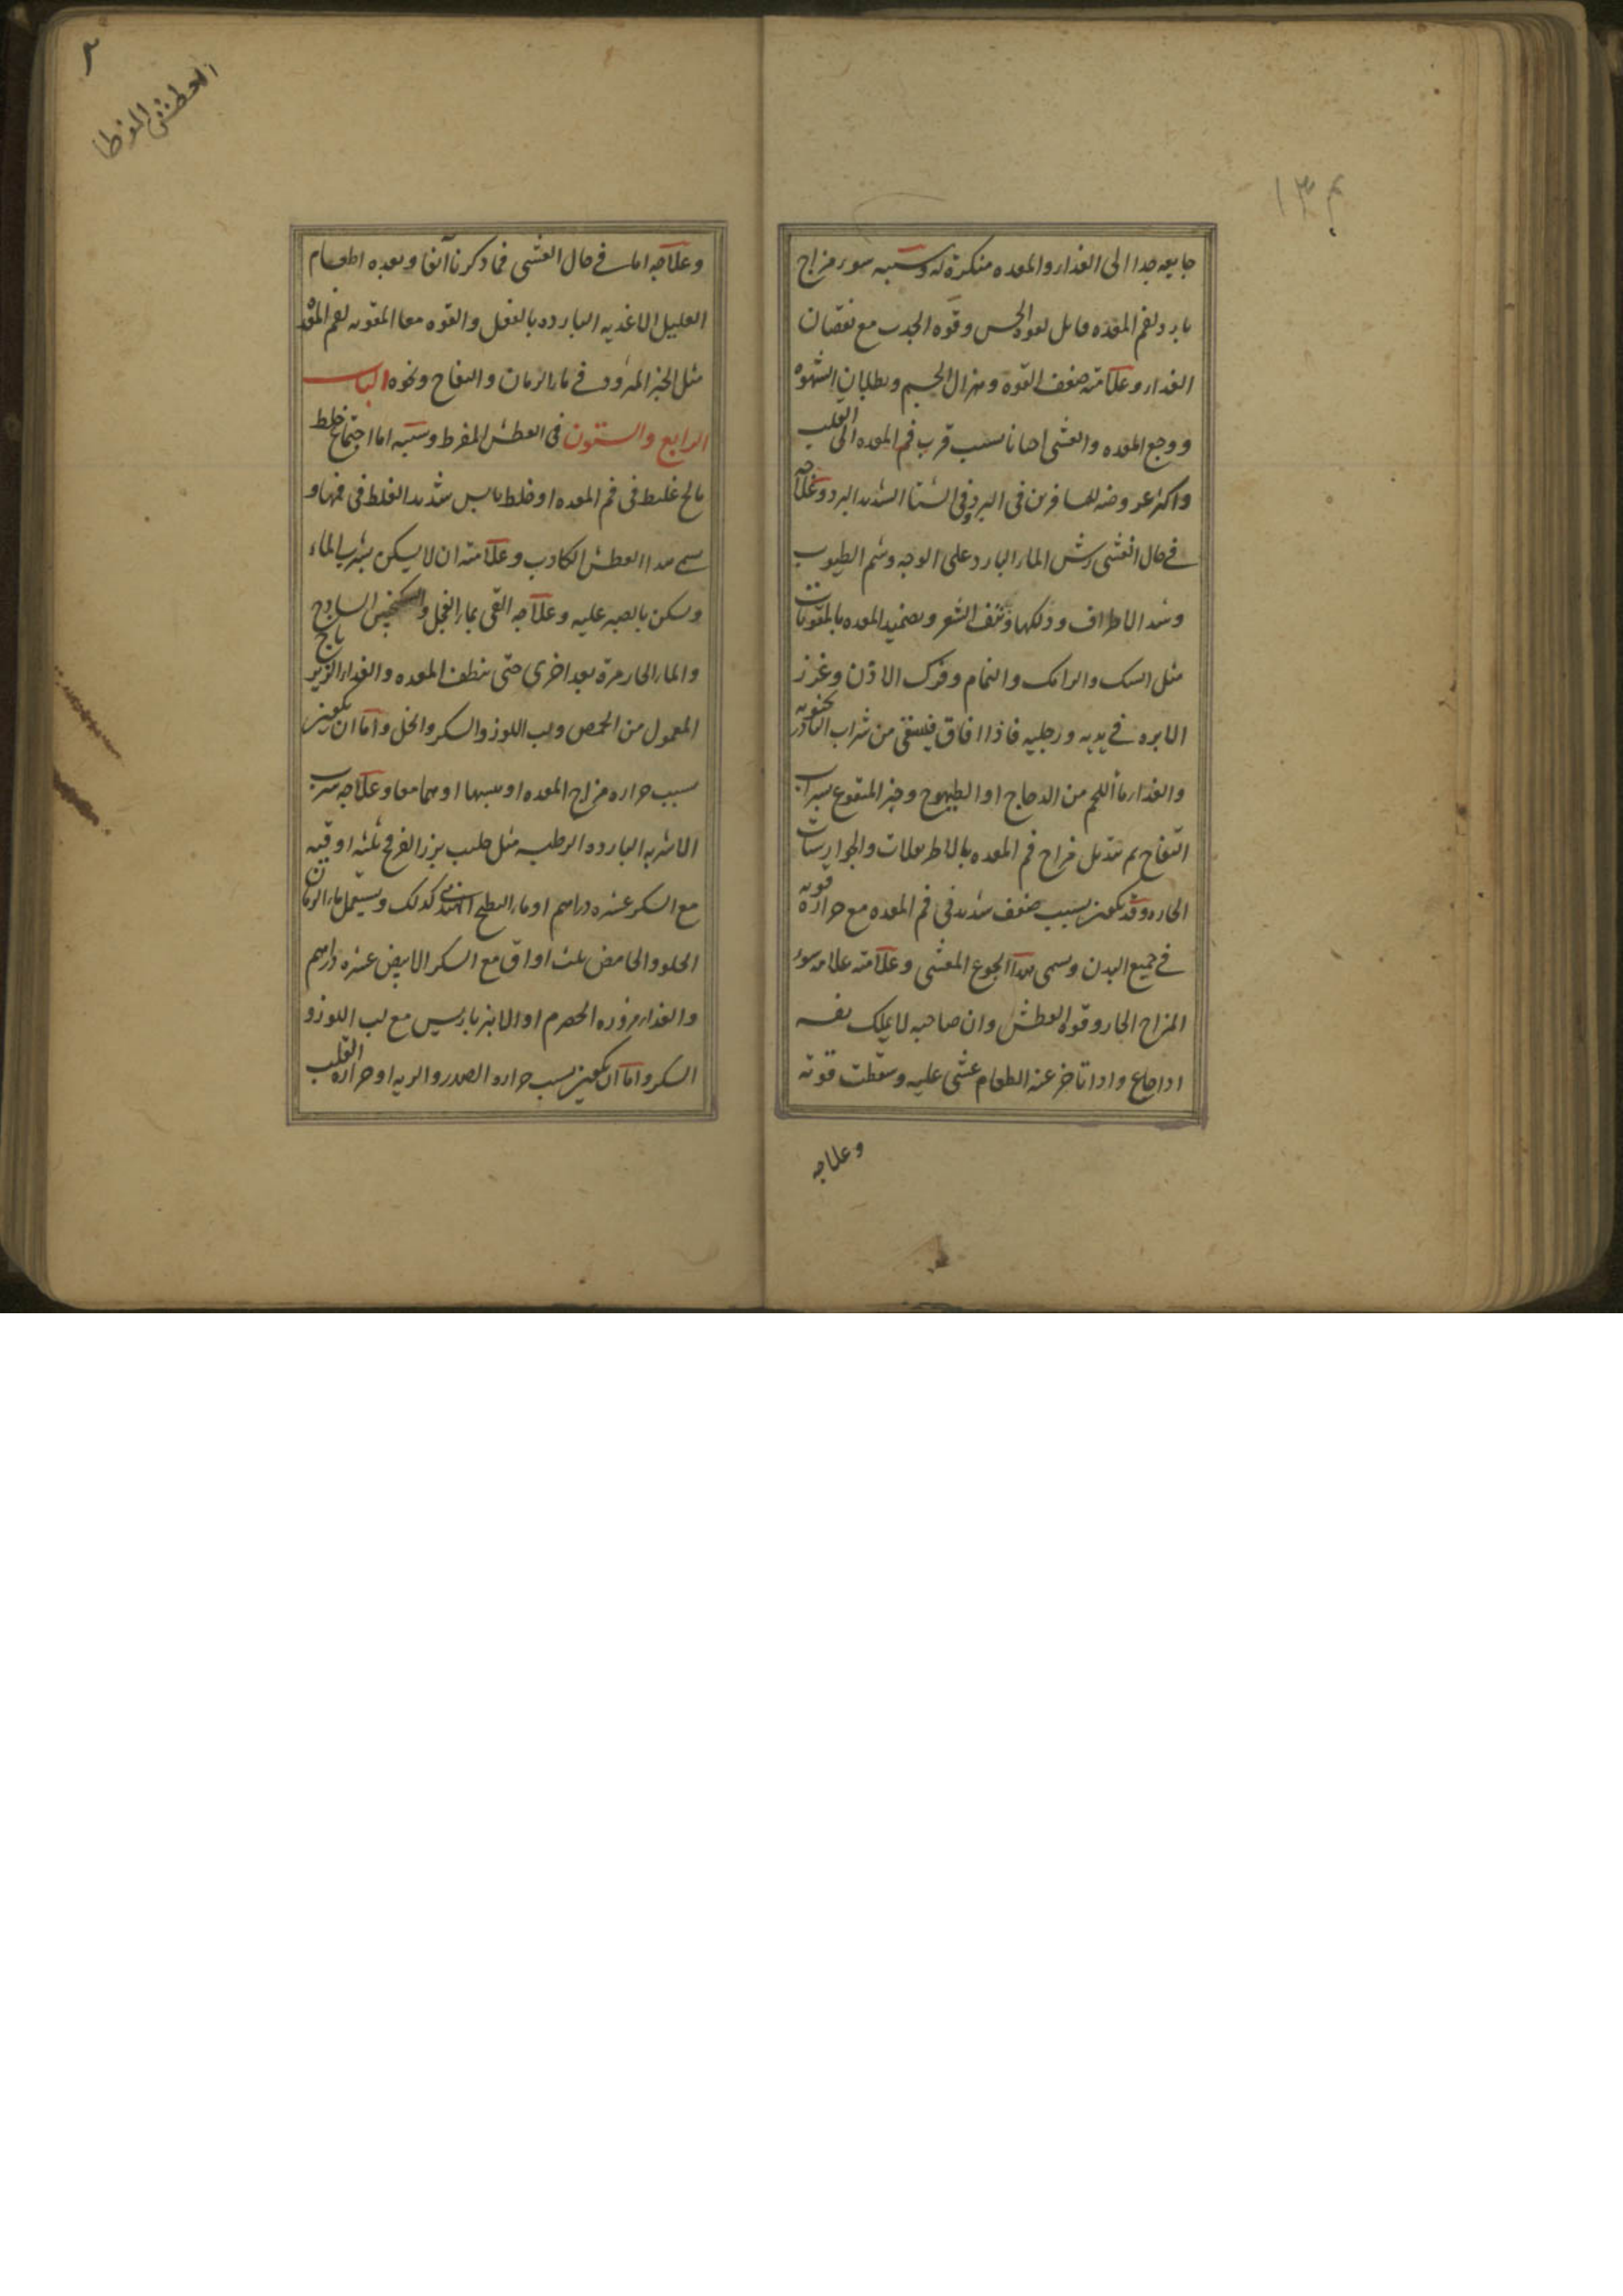 جایعه جدا الی الغداء والمعده منکرة له وسببه سوء مزاج
بارد لفم المعده مابل لقوه الحس وقوه الجدب مع نقصان
الغداء وعلامته ضعف القوه وهزال الجسم وبطلان الشهوه
ووجع المعده والغشی احیانا بسبب قرب فم المعده الی القلب
واکثر عروضه للمسافرین فی البرد وفی الشتا الشدید البرد وعلاجه
فی حال الغشی رش الماء البارد علی الوجه وشم الطیوب
وشد الاطراف ودلکها ونتف الشعر وتضمید المعده بالمقویات
مثل السک والرامک والنمام وفرک الاذن وغرز
الابره فی یدیه ورجلیه فاذا افاق فیسقی من شراب البادرنجنویه
والغداء ماء اللحم من الدجاج او الطیهوج وخبز المنقوع بشراب
التفاح ثم تبدیل مزاج فم المعده بالاطریفلات والجوارشات
الحاره وقد یکون بسبب ضعف شدید فی فم المعده مع حرارة قویه
فی جمیع البدن ویسمی هذا الجوع المغشی وعلامته علامه سوء
المزاج الحار وقوه العطش وان صاحبه لا یملک نفسه
اذا جاع واذا تاخر عنه الطعام غشی علیه وسقطت قوته
وعلاجه
العطش المفرط
وعلاجه اما فی حال الغشی فما ذکرنا آنفا وبعده اطعام
العلیل الاغدیه البارده بالفعل والقوه معا المقویه لفم المعده
مثل الخبز المثرود فی ماء الرمان والتفاح ونحوه الباب
الرابع والستون فی العطش المفرط وسببه اما اجتماع خلط
مالح غلیظ فی فم المعده او خلط یابس شدید الغلظ فی فمها و
یسمی هذا العطش الکاذب وعلامته ان لا یسکن بشرب الماء
ویسکن بالصبر علیه وعلاجه القی بماء الفجل والسکنجبین الساذج
والماء الحار مرة بعد اخری حتی ینظف المعده والغداء الزیرباج
المعمول من الحمص ولب اللوز والسکر والخل واما ان یکون
بسبب حراره مزاج المعده او یبسها او هما معا وعلاجه شرب
الاشربه البارده الرطبه مثل حلیب بزر الفرفخ ثلثه اوقیه
مع السکر عشره دراهم او ماء البطیخ الهندی کذلک ویستعمل ماء الرمان
الحلو والحامض ثلث اواق مع السکر الابیض عشره دراهم
والغداء مزوره الحصرم او الانبرباریس مع لب اللوز و
السکر واما ان یکون بسبب حراره الصدر والریه او حراره القلب